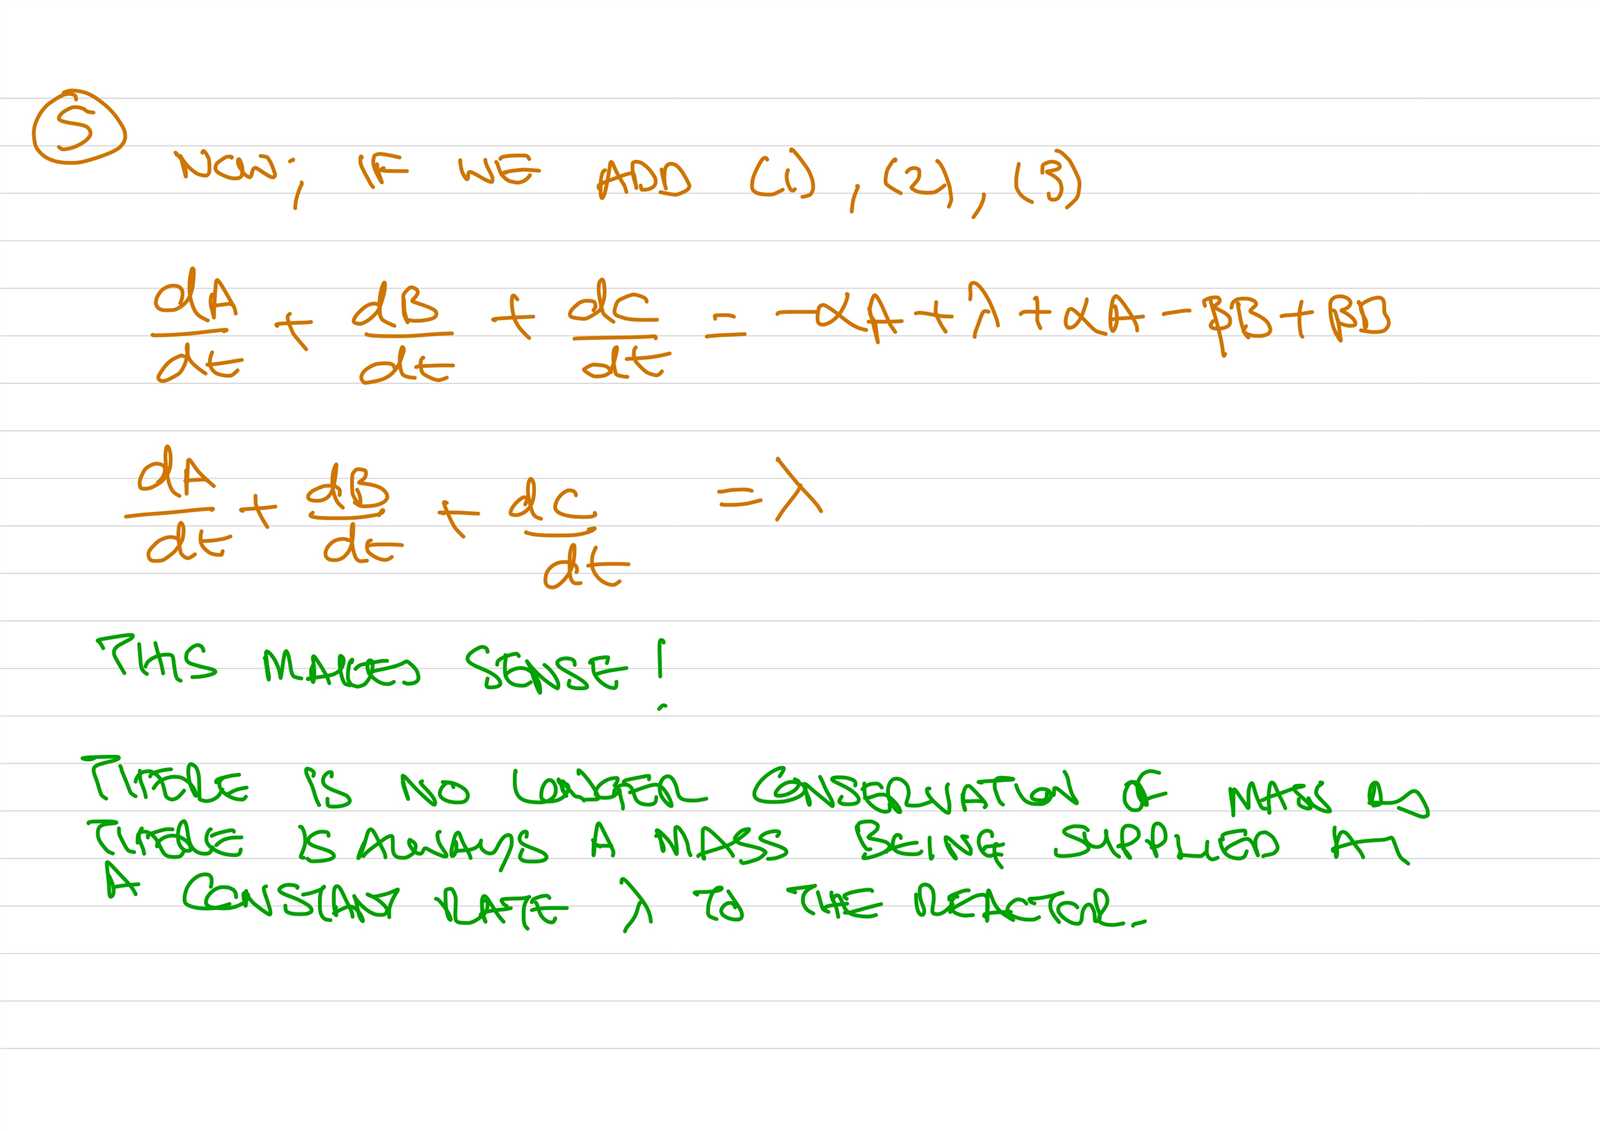 5
NOW; IF WE ADD (1), (2), (3)
dA/dt + dB/dt + dC/dt = -αA + λ + αA - βB + βB
dA/dt + dB/dt + dC/dt = λ
THIS MAKES SENSE!
THERE IS NO LONGER CONSERVATION OF MASS AS
THERE IS ALWAYS A MASS BEING SUPPLIED AT
A CONSTANT RATE λ TO THE REACTOR.